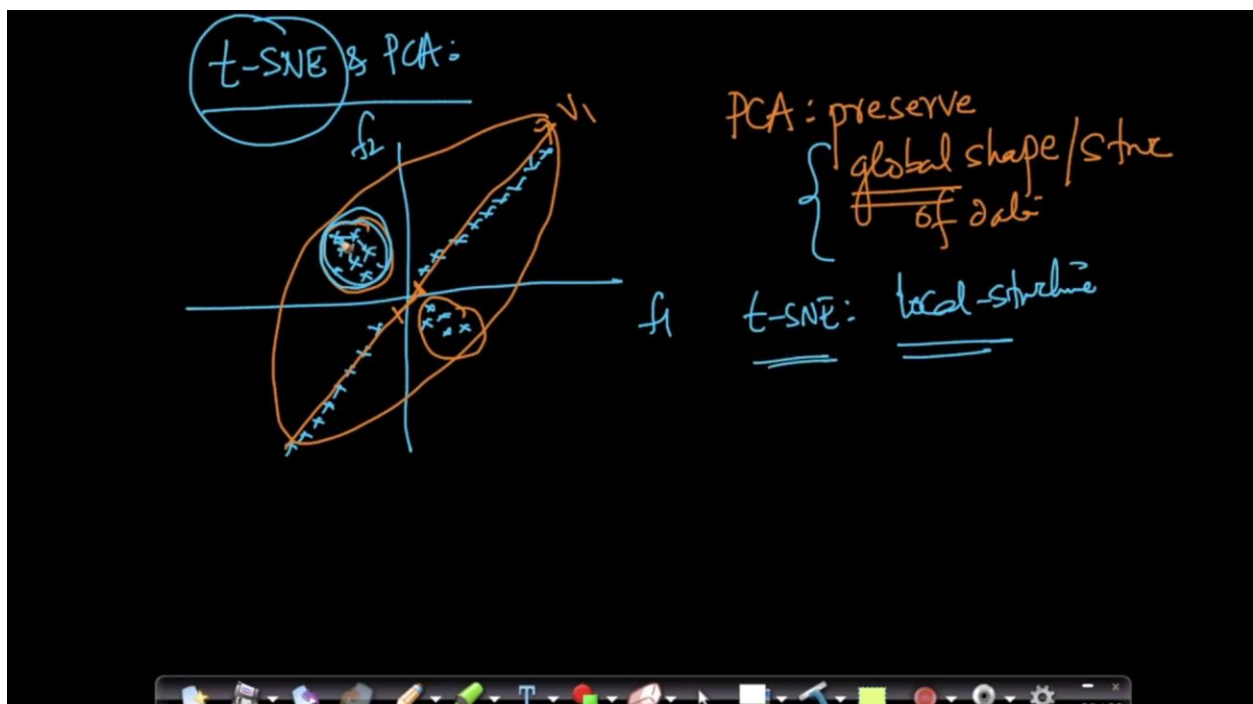 t-SNE & PCA:
f2
V1
f1
PCA: preserve
global shape/struc
of data
t-SNE: local-structure
T